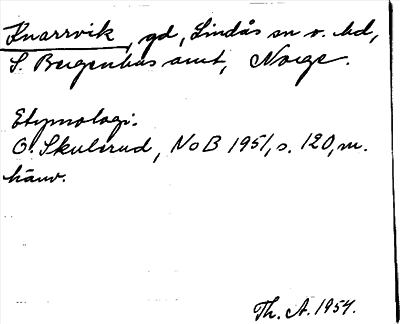 Knarrvik, gd, Lindås sn o. hd,
S. Bergenhus amt, Norge.
Etymologi:
O. Skulerud, NoB 1951, s. 120, m.
hänv.
Th. A. 1954.